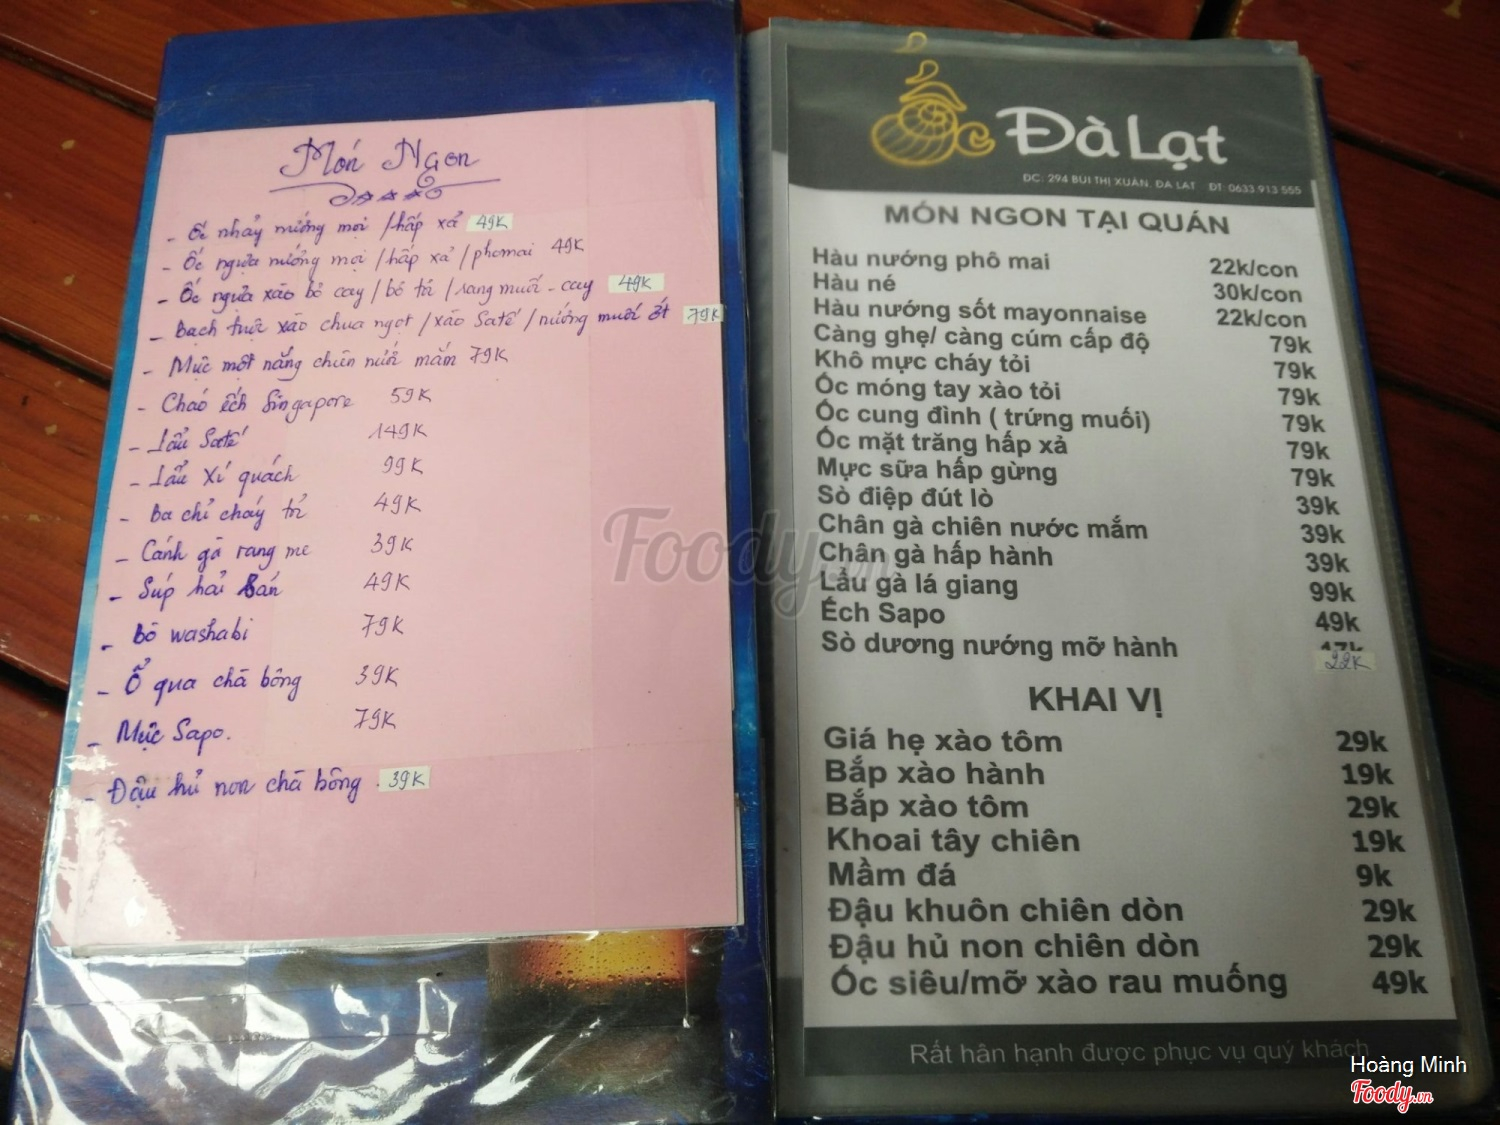 Món Ngon
- Ốc nhảy nướng mọi /hấp xả 49K
- Ốc ngựa nướng mọi /hấp xả /phomai 49K
- Ốc ngựa xào bơ cay / bơ tỏi / rang muối - cay 49K
- Bạch tuộc xào chua ngọt /xào Satế /nướng muối ớt 79K
- Mực một nắng chiên nước mắm 79K
- Cháo ếch Singapore 59K
- Lẩu Satế 149K
- Lẩu Xí quách 99K
- Ba chỉ cháy tỏi 49K
- Cánh gà rang me 39K
- Súp hải sản 49K
- Bò washabi 79K
- Ổ qua chà bông 39K
- Mực Sapo. 79K
- Đậu hủ non chà bông . 39K
Ốc Đà Lạt
ĐC: 294 BÙI THỊ XUÂN, ĐÀ LẠT ĐT: 0633 913 555
MÓN NGON TẠI QUÁN
Hàu nướng phô mai 22k/con
Hàu né 30k/con
Hàu nướng sốt mayonnaise 22k/con
Càng ghẹ/ càng cúm cấp độ 79k
Khô mực cháy tỏi 79k
Ốc móng tay xào tỏi 79k
Ốc cung đình ( trứng muối) 79k
Ốc mặt trăng hấp xả 79k
Mực sữa hấp gừng 79k
Sò điệp đút lò 39k
Chân gà chiên nước mắm 39k
Chân gà hấp hành 39k
Lẩu gà lá giang 99k
Ếch Sapo 49k
Sò dương nướng mỡ hành 22K
KHAI VỊ
Giá hẹ xào tôm 29k
Bắp xào hành 19k
Bắp xào tôm 29k
Khoai tây chiên 19k
Mầm đá 9k
Đậu khuôn chiên dòn 29k
Đậu hủ non chiên dòn 29k
Ốc siêu/mỡ xào rau muống 49k
Rất hân hạnh được phục vụ quý khách
Foody.vn
Hoàng Minh
Foody.vn